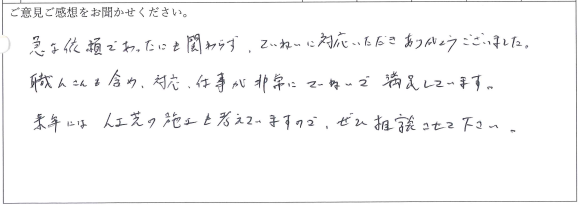 ご意見ご感想をお聞かせください。
急な依頼であったにも関わらず、ていねいに対応いただきありがとうございました。
職人さんも含め、対応、仕事が非常にていねいで満足しています。
来年には人工芝の施工も考えていますので、ぜひ相談させて下さい。